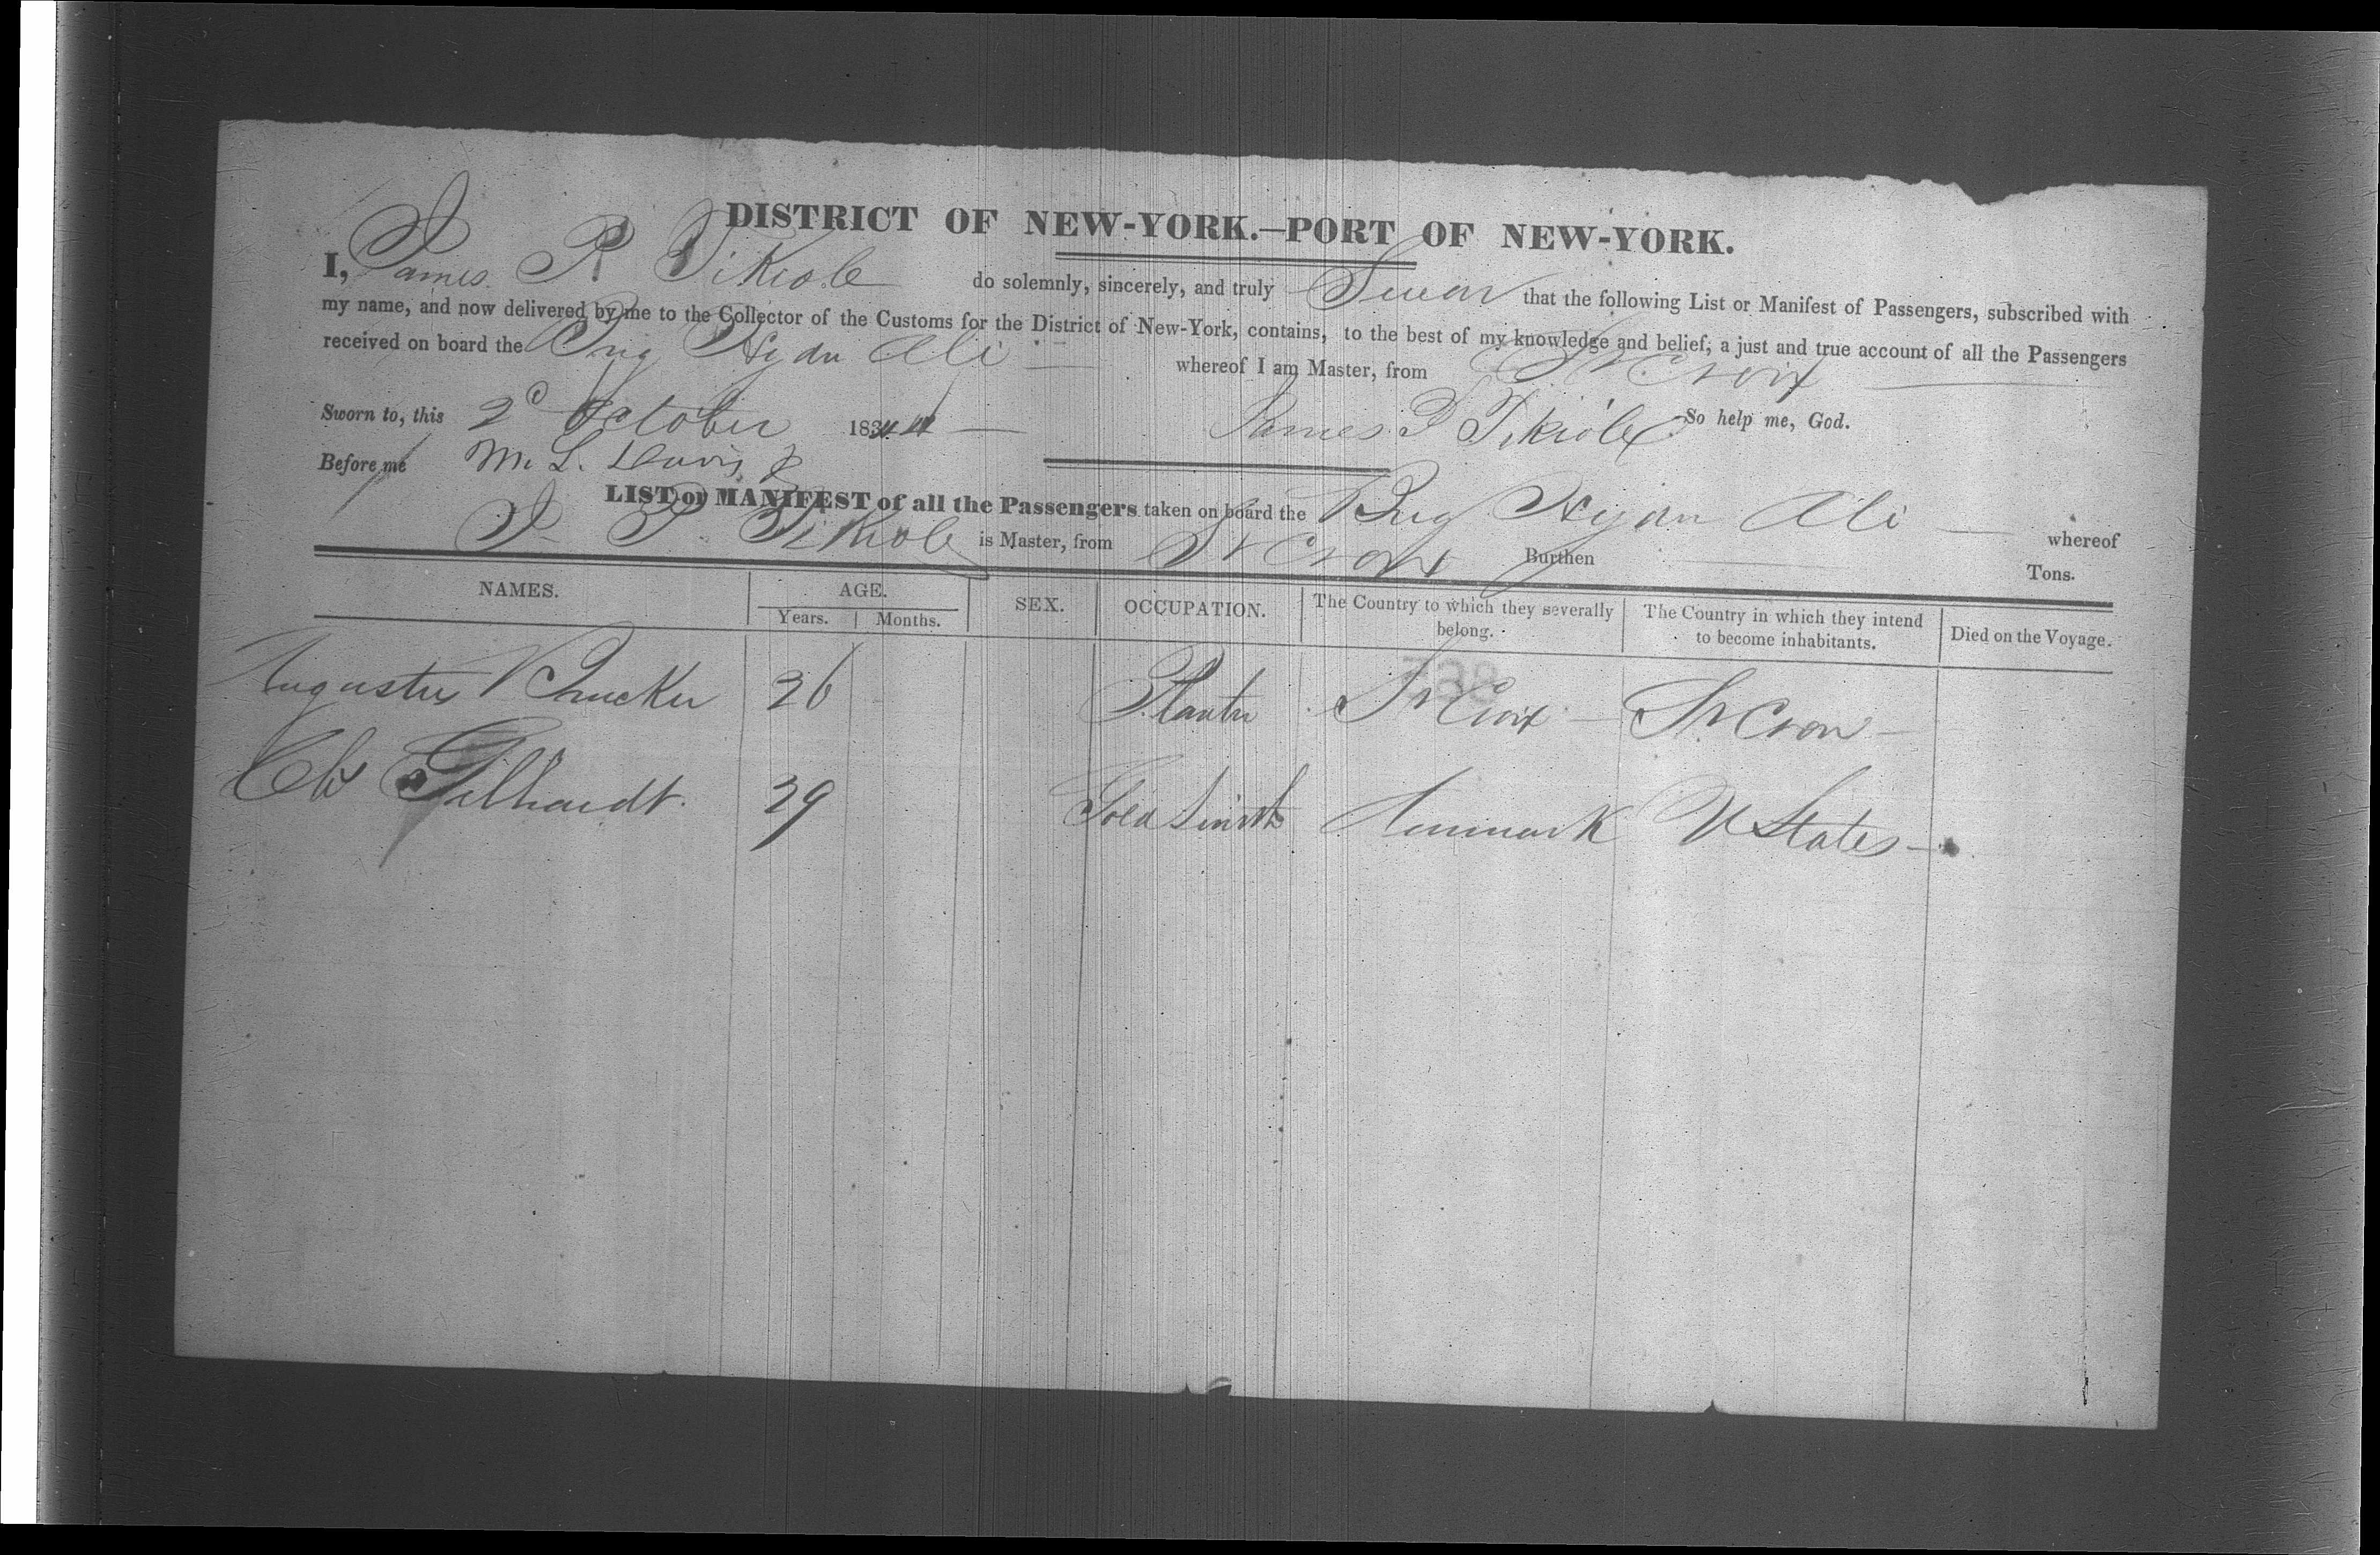 DISTRICT OF NEW-YORK.—PORT OF NEW-YORK.
I, James R do solemnly, sincerely, and truly Swear that the following List or Manifest of Passengers, subscribed with
my name, and now delivered by me to the Collector of the Customs for the District of New-York, contains, to the best of my knowledge and belief, a just and true account of all the Passengers
received on board the Brig Hyder Ali — whereof I am Master, from St Croix —
Sworn to, this 2d October 1844 — James So help me, God.
Before me M. L. Davis
LIST or MANIFEST of all the Passengers taken on board the Brig Hyder Ali — whereof
J is Master, from St Croix Burthen Tons.
NAMES. AGE. SEX. OCCUPATION. The Country to which they severally belong. The Country in which they intend to become inhabitants. Died on the Voyage.
Years. Months.
Augustus 26 Planter St Croix — St Croix —
29 Gold Smith Denmark U States —